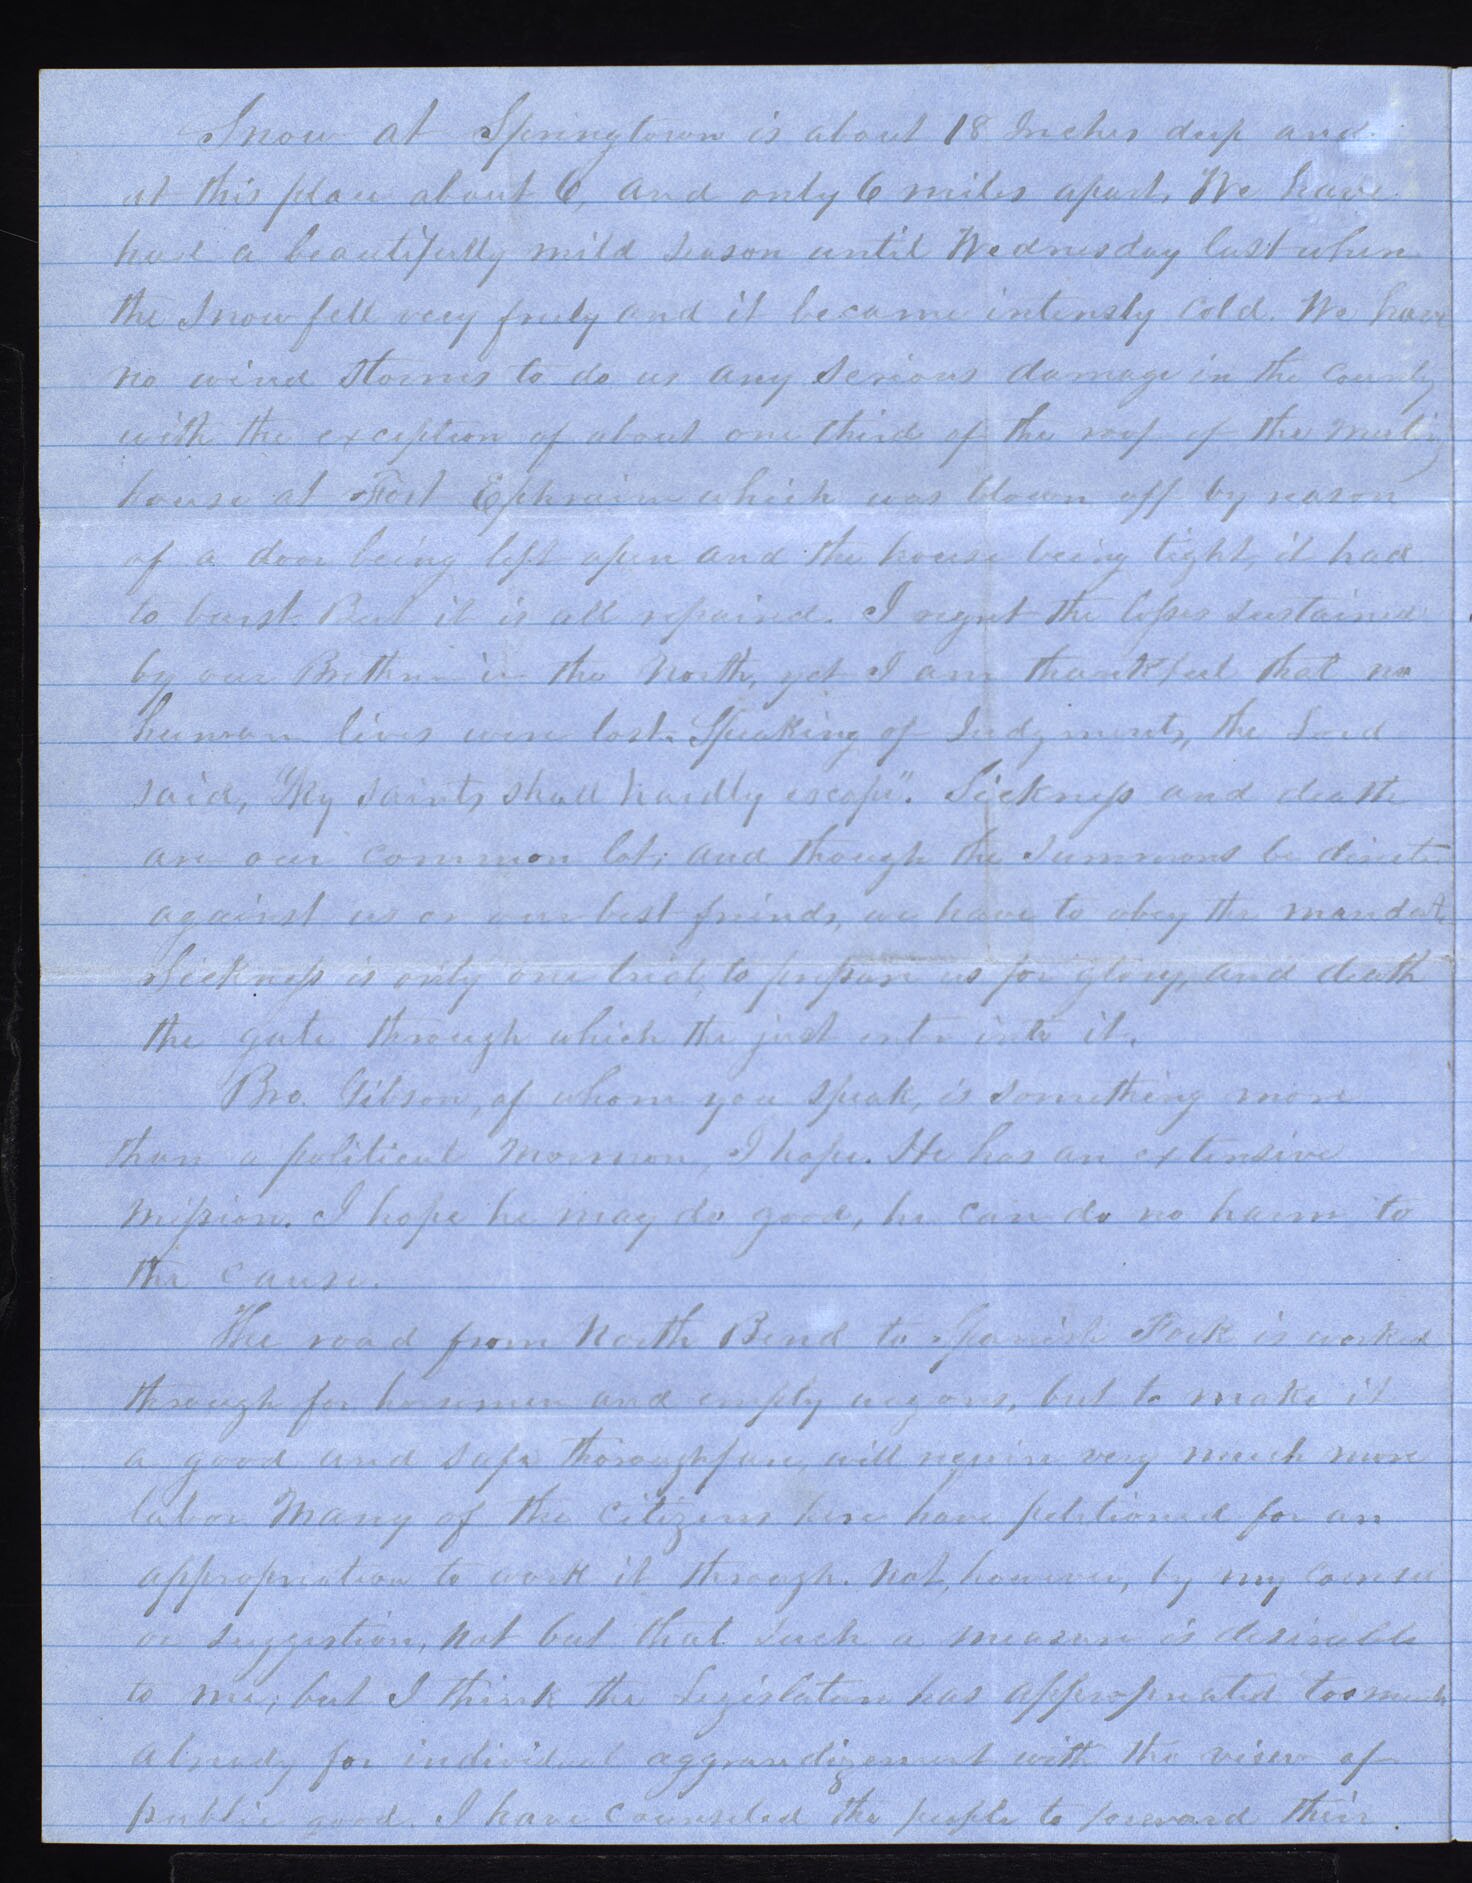 Snow at Springtown is about 18 Inches deep and
at this place about 6, and only 6 miles apart. We have
had a beautifully mild season until Wednesday last when
the Snow fell very freely and it became intensly cold. We have
no wind storms to do us any serious damage in the county
with the exception of about one third of the roof of the meeting
house at Fort Ephraim which was blown off by reason
of a door being left open and the house being tight, it had
to burst. But it is all repaired. I regret the losses sustained
by our Brethren in the North, yet I am thankful that no
human lives were lost. Speaking of Judgments, the Lord
said, "My saints shall hardly escape". Sickness and death
are our common lot; and though the summons be directed
against us or our best friends, we have to obey the mandate
Sickness is only one trial, to prepare us for glory, and death
the gate through which the just enter into it.
Bro. Gibson, of whom you speak, is something more
than a political Mormon, I hope. He has an extensive
Mission. I hope he may do good, he can do no harm to
the cause.
The road from North Bend to Spanish Fork is worked
through for horsemen and empty wagons, but to make it
a good and safe thoroughfare, will require very much more
labor Many of the citizens here have petitioned for an
appropriation to work it through. Not, however, by my Counsel
or suggestion, not but that such a measure is desirable
to me; but I think the Legislature has appropriated too much
already for individual aggrandizement with the view of
public good. I have counseled the people to forward their